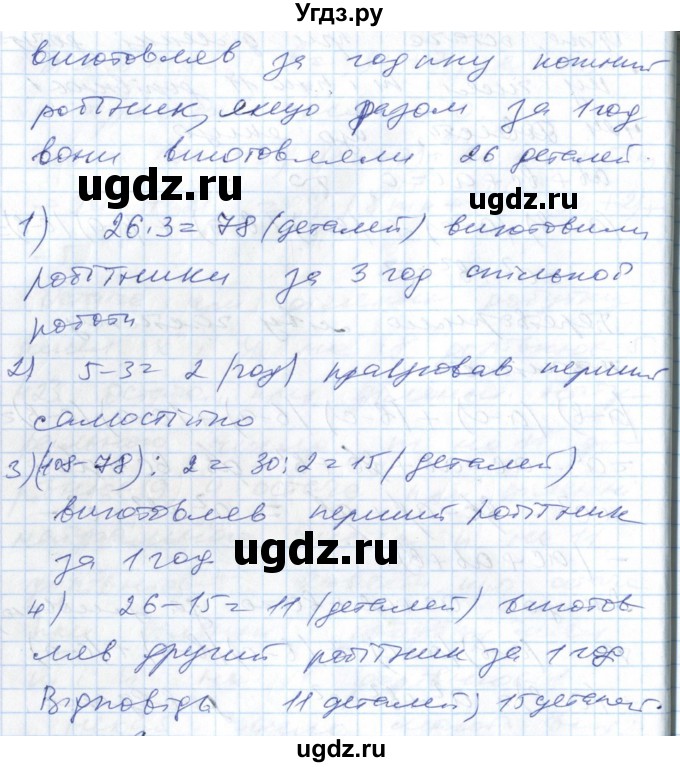 Угдз.ру
виготовляв за годину кожний
робітник, якщо разом за 1 год
вони виготовляли 26 деталей.
ugdz.ru ugdz.ru
1) 26·3 = 78 (деталей) виготовили
робітники за 3 год спільної
роботи
2) 5-3 = 2 (год) працював перший
самостійно
3) (108-78) : 2 = 30 : 2 = 15 (деталей)
виготовляв перший робітник
за 1 год
ugdz.ru ugdz.ru
4) 26-15 = 11 (деталей) виготов
ляв другий робітник за 1 год
Відповідь 11 деталей; 15 деталей.
ugdz.ru